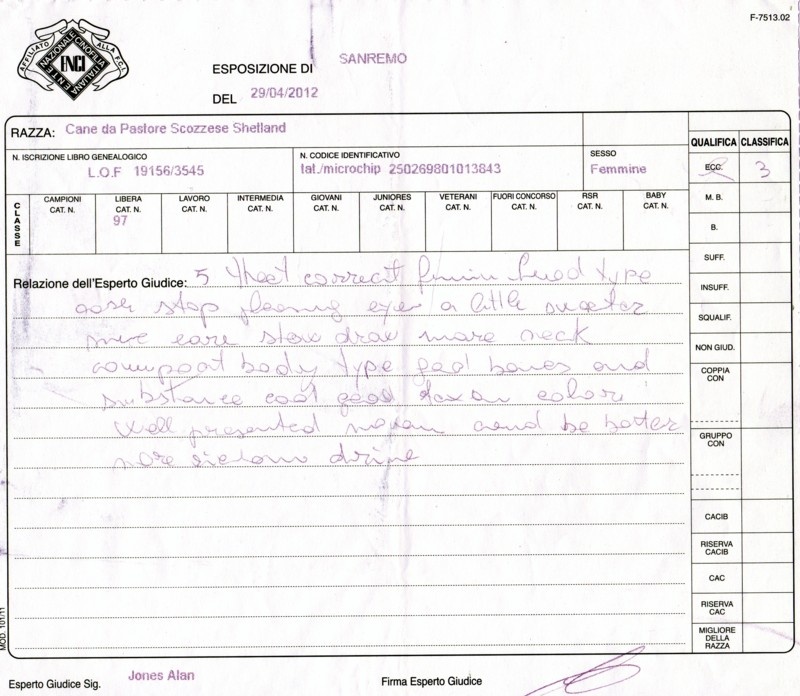 F-7513.02
AFFILIATO ALLA F.C.I.
ENTE NAZIONALE CINOFILIA ITALIANA
ENCI
ESPOSIZIONE DI SANREMO
DEL 29/04/2012
RAZZA: Cane da Pastore Scozzese Shetland
QUALIFICA CLASSIFICA
N. ISCRIZIONE LIBRO GENEALOGICO
L.O.F 19156/3545
N. CODICE IDENTIFICATIVO
tat./microchip 250269801013843
SESSO
Femmine
ECC. 3
CLASSE
CAMPIONI CAT. N.
LIBERA CAT. N.
97
LAVORO CAT. N.
INTERMEDIA CAT. N.
GIOVANI CAT. N.
JUNIORES CAT. N.
VETERANI CAT. N.
FUORI CONCORSO CAT. N.
RSR CAT. N.
BABY CAT. N.
M. B.
B.
SUFF.
INSUFF.
SQUALIF.
NON GIUD.
COPPIA CON
GRUPPO CON
CACIB
RISERVA CACIB
CAC
RISERVA CAC
MIGLIORE DELLA RAZZA
Relazione dell'Esperto Giudice: 5 correct head type
stop eyes a little
ears more neck
body type bones and
substance good
Well presented be

MOD. 101/11
Esperto Giudice Sig. Jones Alan
Firma Esperto Giudice